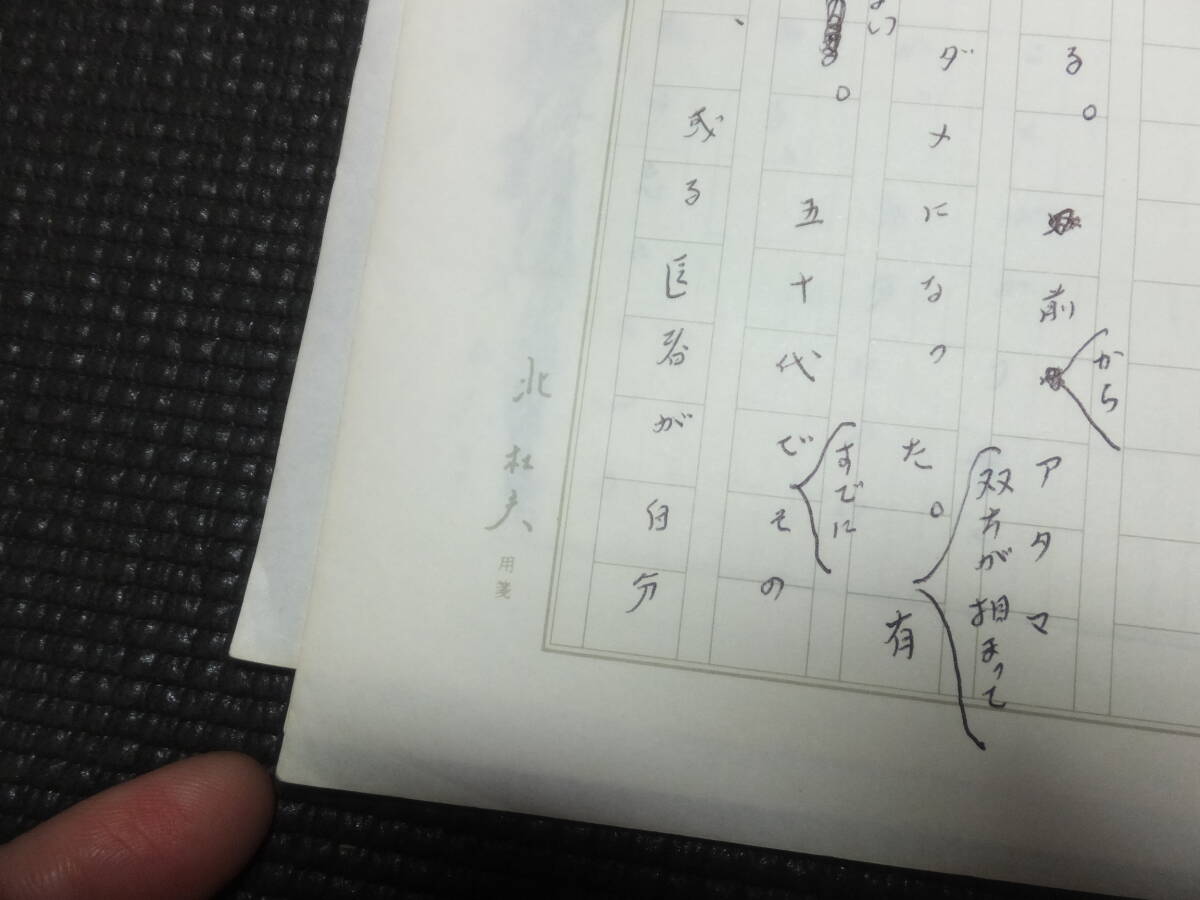 る。前
から
アタマ
双方が相まって
ダメになった。有
ない
。五十代でその
すでに
、或る医者が自分
北杜夫
用箋